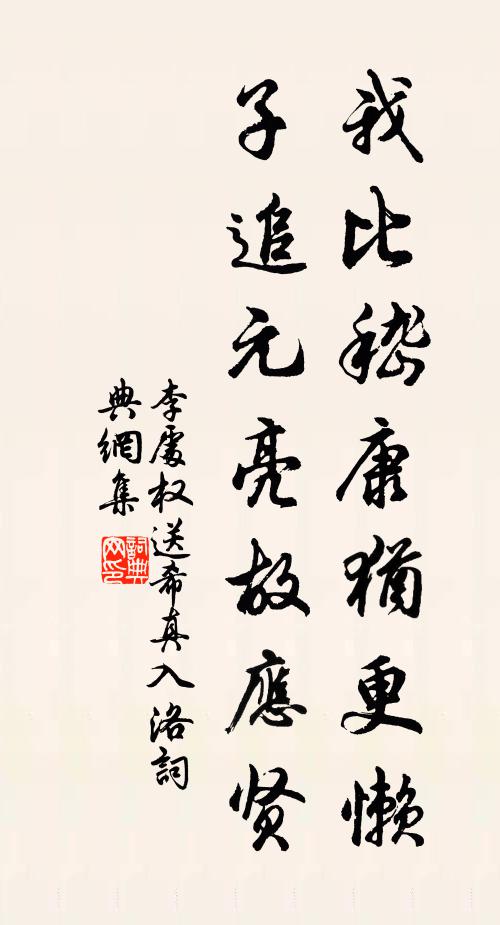 我比嵇康猶更懶
子追元亮故應贤
李處权送希真入洛詞
典網集
詞典
网印